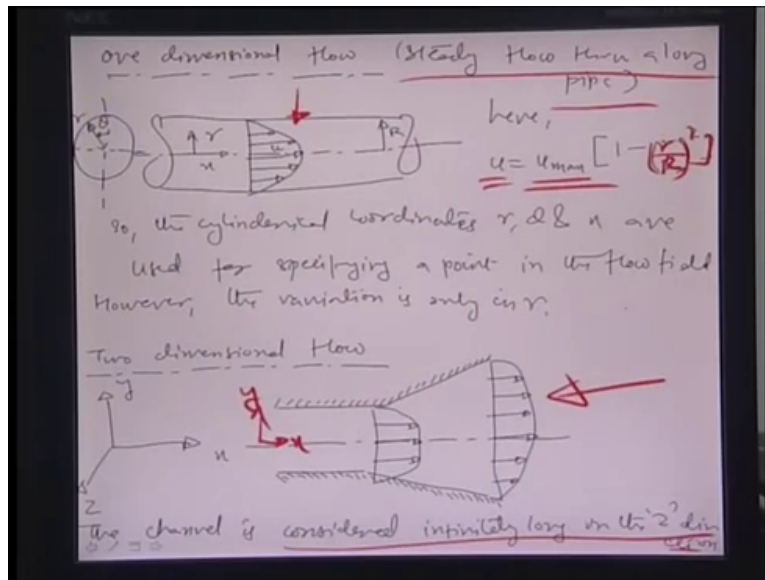 one dimensional flow (steady flow thru a long
pipe)
here,
u = umax [1 - (r/R)²]
r θ
R
r
x
u
R
so, the cylinderical coordinates r, θ & x are
used for specifying a point in the flow field
However, the variation is only in r.
Two dimensional flow
y
x
z
y
x
The channel is considered infinitely long in the 'z' dir
ection